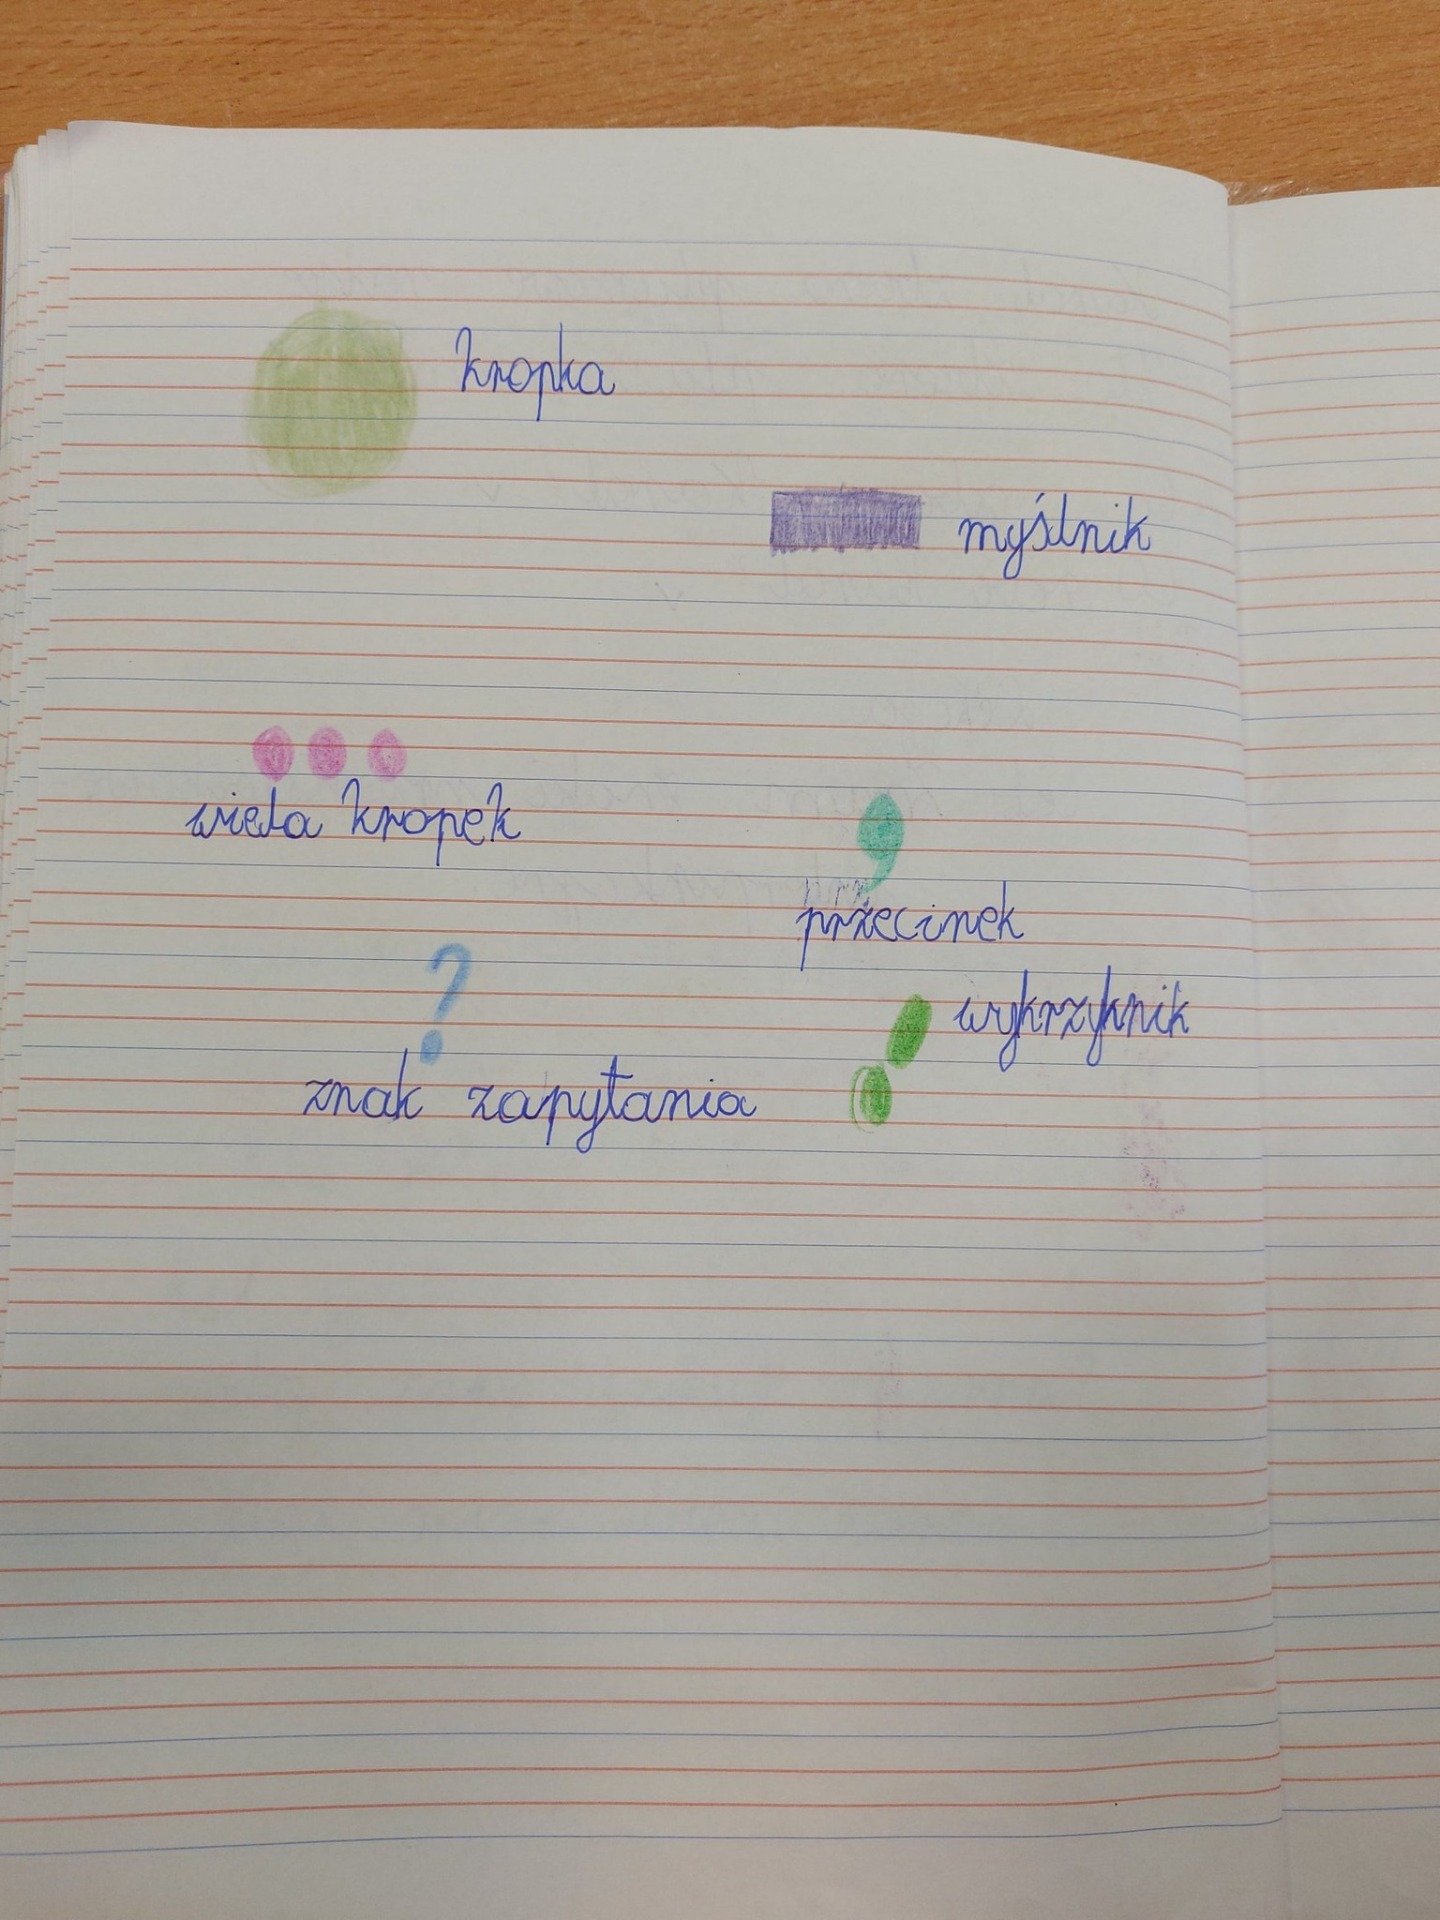 kropka
myślnik
wiela kropek
przecinek
wykrzyknik
?
znak zapytania